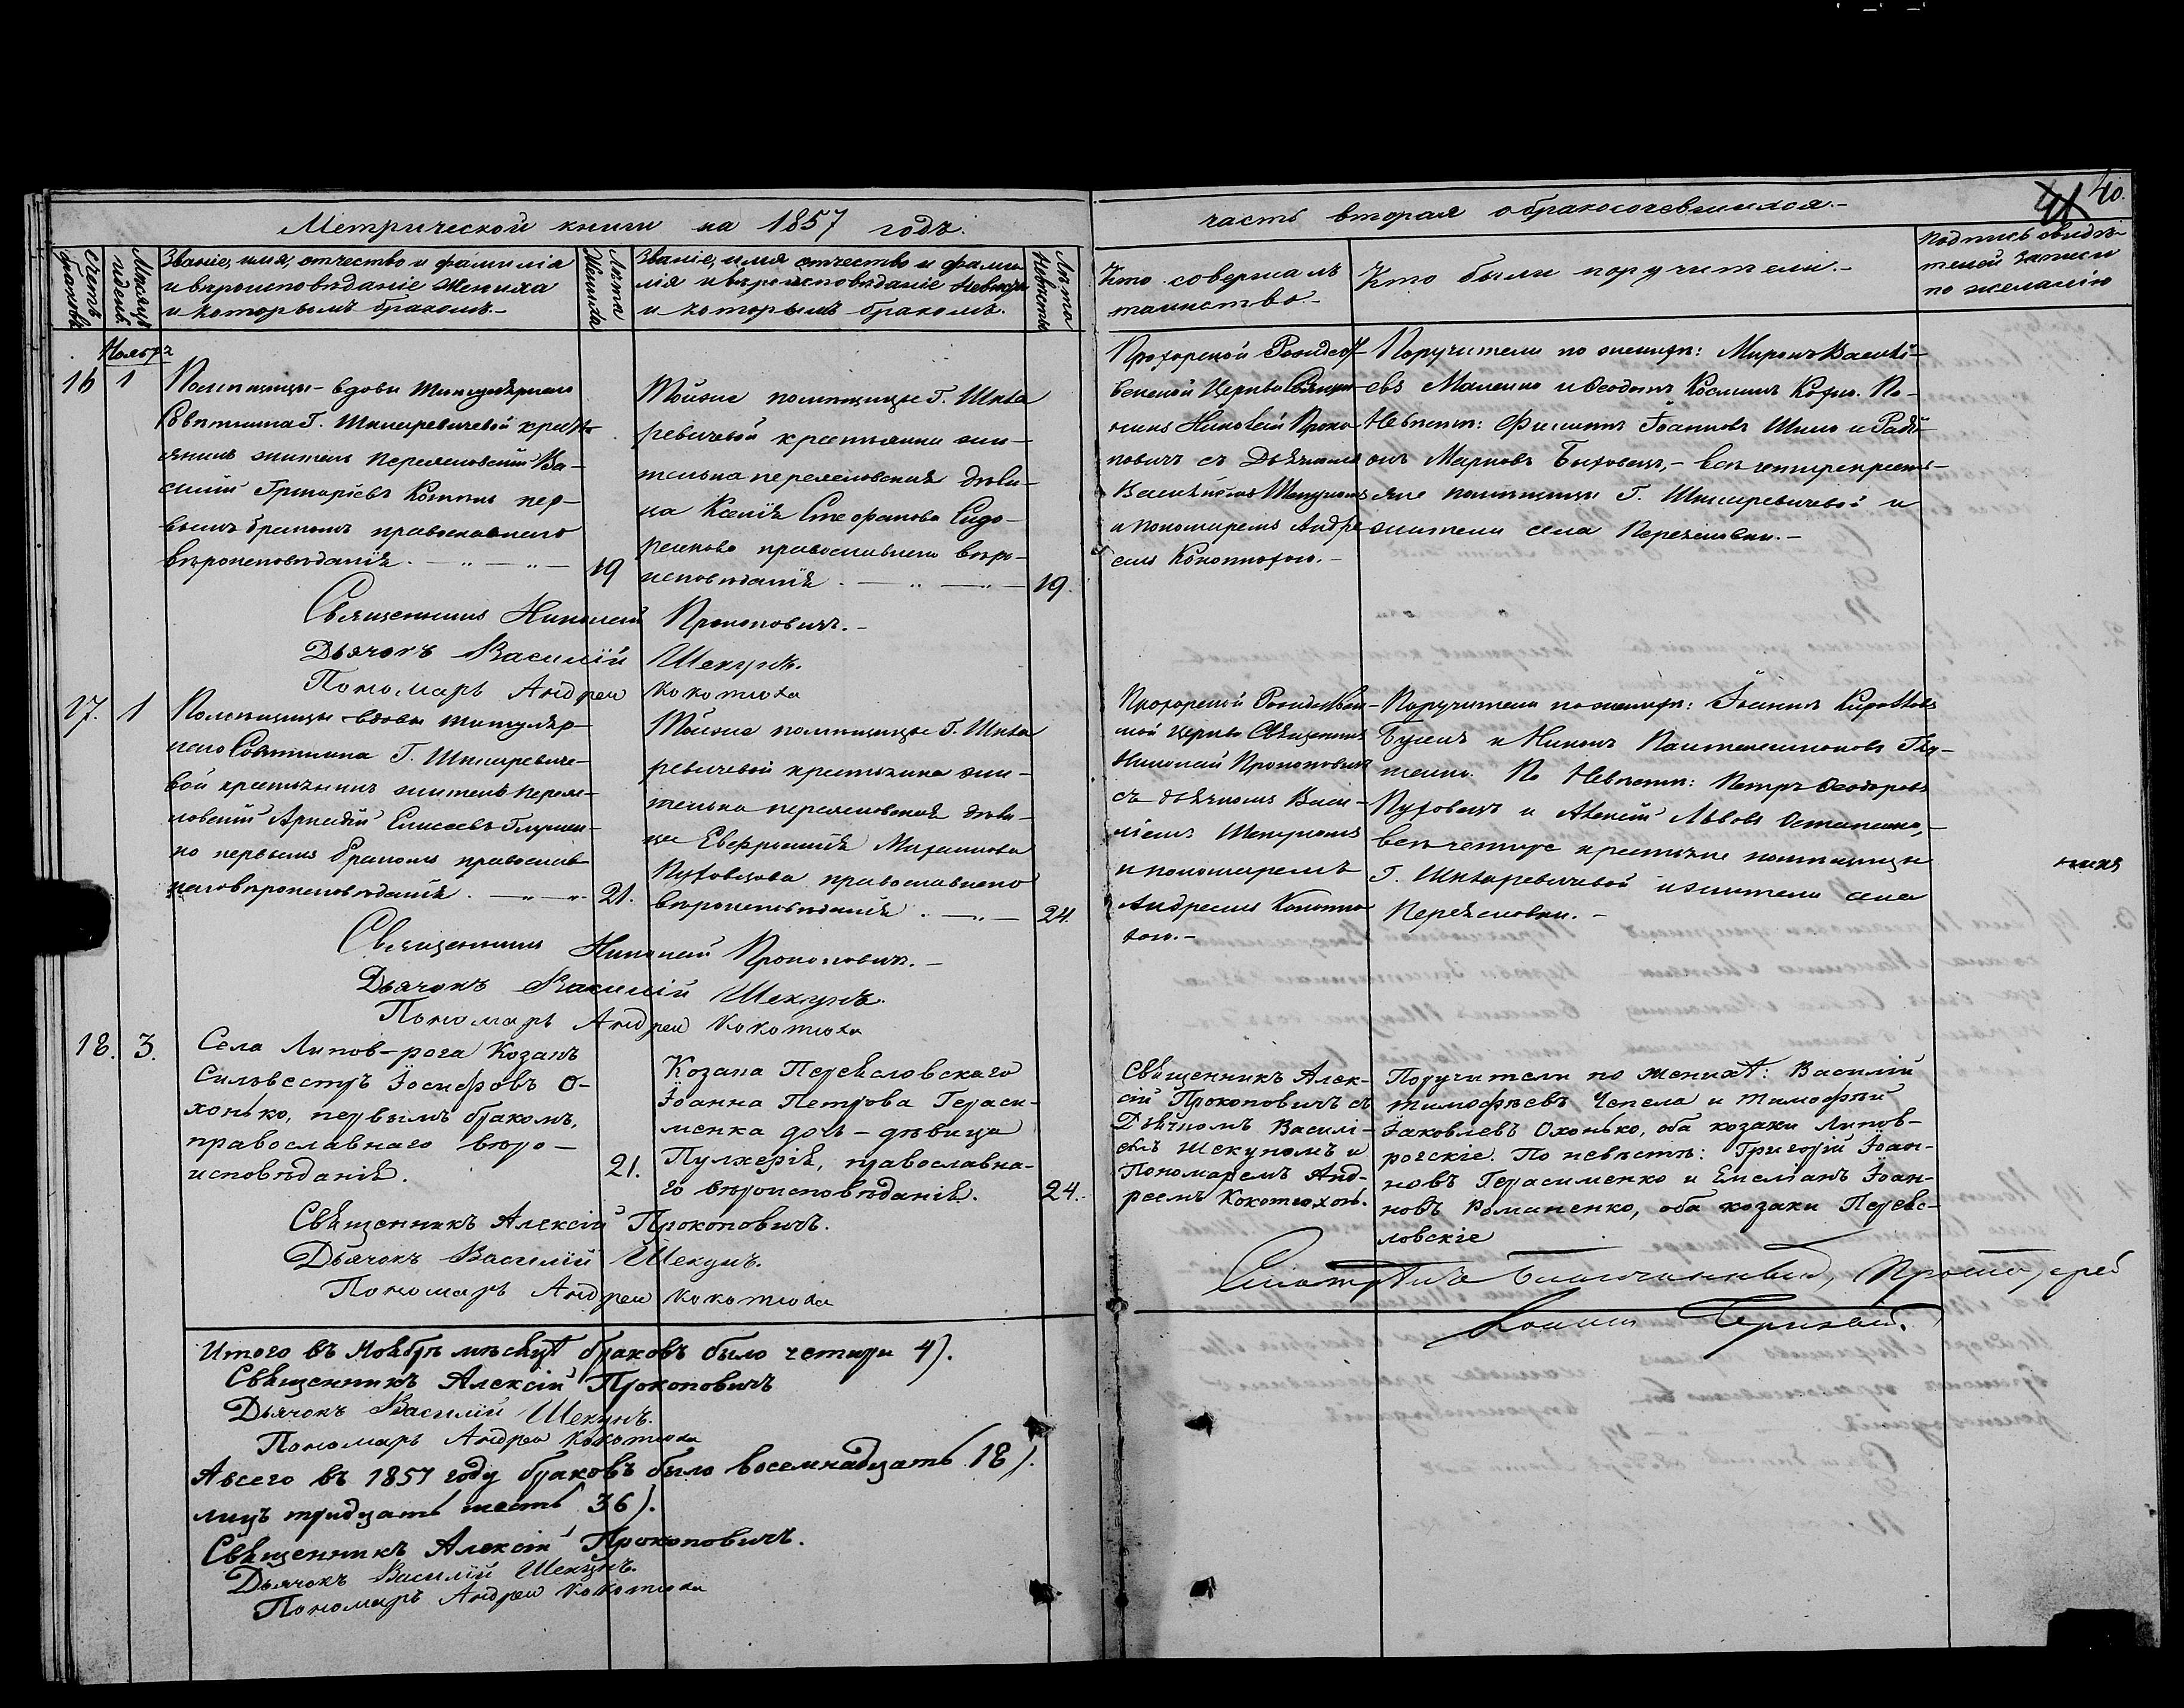 Метрической книги на 1857 годъ.
часть вторая о бракосочевшихся.-
41 40.
Счетъ браковъ
Мѣсяцъ и день
Званіе, имя, отчество и фамилія
и вѣроисповѣданіе жениха
и которымъ бракомъ.-
Лѣта Жениха
Званіе, имя отчество и фами-
лія и вѣроисповѣданіе невѣсты
и которымъ бракомъ.
Лѣта Невѣсты
Кто совершалъ
таинство.-
Кто были поручители.-
Подпись свидѣ-
телей записи
по желанію
Ноябрь
16 1
Помѣщицы-вдовы Титулярнаго
Совѣтника Г. Шкляревичевой кресть-
янинъ житель Переясловскій Ва-
силій Григорьевъ пер-
вымъ бракомъ православнаго
вѣроисповѣданія.
19
Тойже помѣщицы Г. Шкля
ревичевой крестьянка жи-
телька переясловская дѣви-
ца Ксенія Стефанова Сидо-
ренкова православнаго вѣро-
исповѣданія.
19.
Прохорской Рождест-
венской Церкви Священ-
никъ Николай Проко-
повичъ съ Дьячкомъ
Василіемъ Шекуномъ
и пономаремъ Андре-
емъ Кокотюхою.-
Поручители по женихѣ: Миронъ Василі-
евъ и Ѳеодотъ Косминъ. По
Невѣстѣ: Филиппъ Іоанновъ Шило и
Марковъ - всѣ четыре кресть-
яне помѣщицы Г. Шкляревичевой и
жители села Переясловки.-
Священникъ Николай Прокоповичъ.-
Дьячокъ Василій Шекунъ.
Пономарь Андрей Кокотюха
17. 1
Помѣщицы-вдовы титуляр-
наго Совѣтника Г. Шкляревиче-
вой крестьянинъ житель Перея-
ловскій Елисеевъ
первымъ бракомъ православ
наго вѣроисповѣданія.
21.
Тойже помѣщицы Г. Шкля
ревичевой крестьянка жи-
телька переясловская дѣви-
ца Евфросинія Михайлова
Пуховцова православнаго
вѣроисповѣданія.
24.
Прохорской Рождествен-
ской Церкви Священникъ
Николай Прокоповичъ
съ дьячкомъ Васи-
ліемъ Шекуномъ
и пономаремъ
Андреемъ Кокотю-
хою.-
Поручители по женихѣ: Іоаннъ
и Никонъ Пантелеимоновъ
По Невѣстѣ: Петръ Ѳеодоровъ
Пуховецъ и Алексій Львовъ Остапенко,
всѣ четыре крестьяне помѣщицы
Г. Шкляревичевой и жители села
Переясловки.-
Священникъ Николай Прокоповичъ.-
Дьячокъ Василій Шекунъ.
Пономарь Андрей Кокотюха
18. 3.
Села Липов-рога Козакъ
Сильвестръ Іосифовъ О-
хонько, первымъ бракомъ,
православнаго вѣро-
исповѣданія.
21.
Козака Переясловскаго
Іоанна Петрова Гераси-
менка дочь-дѣвица
Пулхерія, православна-
го вѣроисповѣданія.
24.
Священникъ Алек-
сій Прокоповичъ съ
Дьячкомъ Василі-
емъ Шекуномъ и
Пономаремъ Анд-
реемъ Кокотюхою.
Поручители по женихѣ: Василій
Тимофѣевъ Чепела и Тимофѣй
Іаковлевъ Охонько, оба козаки Липов-
рогскіе. По невѣстѣ: Григорій Іоан-
новъ Герасименко и Емеліанъ Іоан-
новъ Романенко, оба козаки Переяс-
ловскіе
Священникъ Алексій Прокоповичъ.
Дьячокъ Василій Шекунъ.
Пономарь Андрей Кокотюха
Итого въ Ноябрѣ мѣсяцѣ браковъ было четыри 4).
Священникъ Алексій Прокоповичъ
Дьячокъ Василій Шекунъ.
Пономарь Андрей Кокотюха
А всего въ 1857 году браковъ было восемнадцать (18).
лицъ тридцать шесть (36).
Священникъ Алексій Прокоповичъ.
Дьячокъ Василій Шекунъ.
Пономарь Андрей Кокотюха